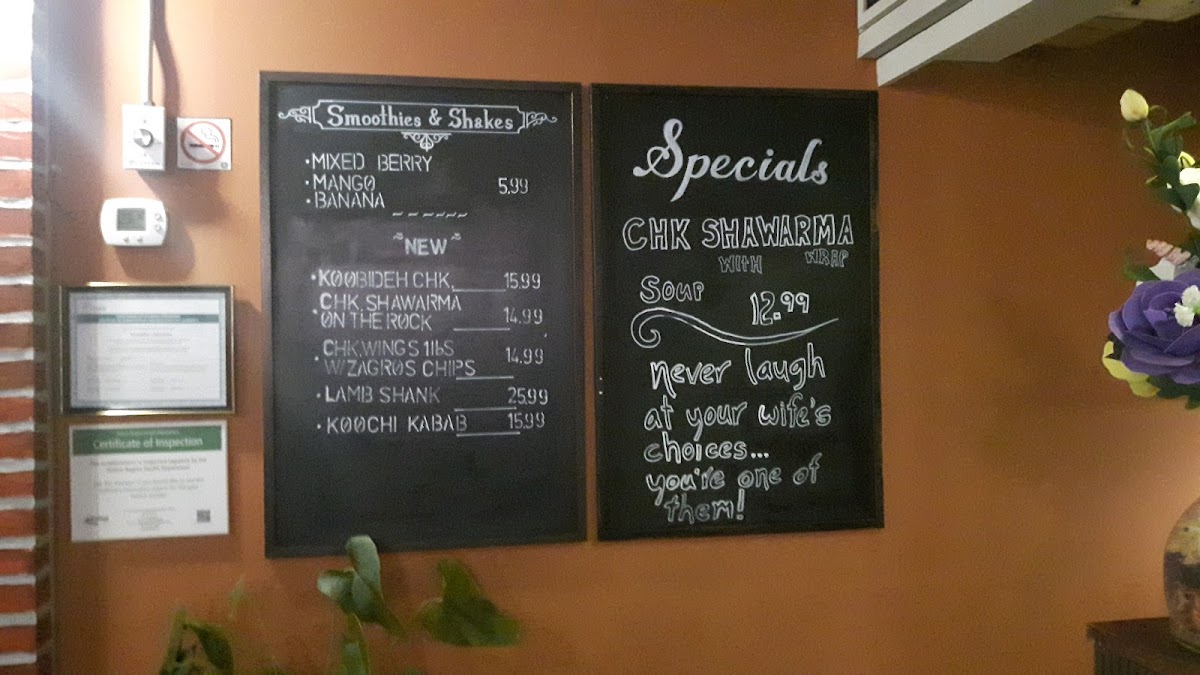 Smoothies & Shakes
·MIXED BERRY
·MANGO 5.99
·BANANA
~NEW~
·KOOBIDEH CHK. 15.99
·CHK. SHAWARMA
ON THE ROCK 14.99
·CHK. WINGS 1lbS
W/ZAGROS CHIPS 14.99
·LAMB SHANK 25.99
·KOOCHI KABAB 15.99
Specials
CHK SHAWARMA
WITH WRAP
Soup 12.99
never laugh
at your wife's
choices...
you're one of
them!
Certificate of Inspection